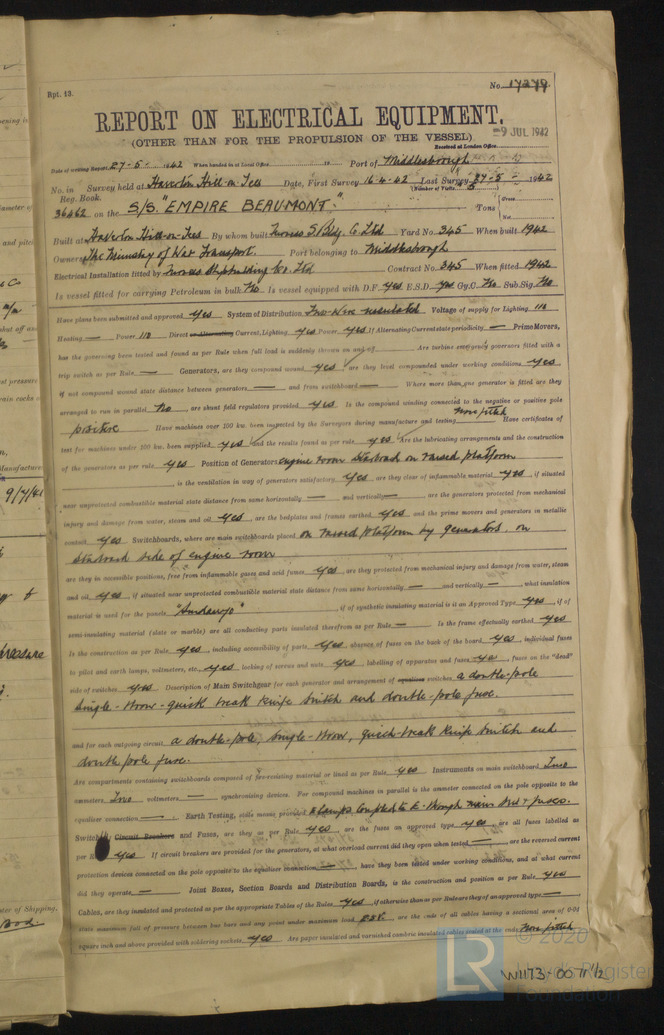 Rpt. 13.
No. 17279
REPORT ON ELECTRICAL EQUIPMENT.
(OTHER THAN FOR THE PROPULSION OF THE VESSEL).
-9 JUL 1942
Received at London Office
Date of writing Report 27-5- 1942 When handed in at Local Office 19 Port of Middlesbrough
No. in Survey held at Haverton Hill-on-Tees Date, First Survey 16-4-42 Last Survey 27-5- 1942
Reg. Book. (Number of Visits 5)
36462 on the S/S. "EMPIRE BEAUMONT". Tons { Gross Net
Built at Haverton Hill-on-Tees By whom built Furness S/Bldg. Co. Ltd Yard No. 345 When built 1942
Owners The Ministry of War Transport. Port belonging to Middlesbrough
Electrical Installation fitted by Furness Shipbuilding Co. Ltd Contract No. 345 When fitted 1942
Is vessel fitted for carrying Petroleum in bulk No Is vessel equipped with D.F. Yes E.S.D. Yes Gy.C. No Sub.Sig. No
Have plans been submitted and approved Yes System of Distribution Two-wire insulated Voltage of supply for Lighting 110
Heating — Power 110 Direct or Alternating Current, Lighting Yes Power Yes If Alternating Current state periodicity — Prime Movers,
has the governing been tested and found as per Rule when full load is suddenly thrown on and off Are turbine emergency governors fitted with a
trip switch as per Rule — Generators, are they compound wound Yes are they level compounded under working conditions Yes
if not compound wound state distance between generators — and from switchboard — Where more than one generator is fitted are they
arranged to run in parallel No are shunt field regulators provided Yes Is the compound winding connected to the negative or positive pole
positive Have machines over 100 kw. been inspected by the Surveyors during manufacture and testing None fitted Have certificates of
test for machines under 100 kw. been supplied Yes and the results found as per rule Yes Are the lubricating arrangements and the construction
of the generators as per rule Yes Position of Generators engine room starboard on raised platform
is the ventilation in way of generators satisfactory Yes are they clear of inflammable material Yes, if situated
near unprotected combustible material state distance from same horizontally — and vertically — are the generators protected from mechanical
injury and damage from water, steam and oil Yes, are the bedplates and frames earthed Yes and the prime movers and generators in metallic
contact Yes Switchboards, where are main switchboards placed on raised platform by generators on
starboard side of engine room
are they in accessible positions, free from inflammable gases and acid fumes Yes, are they protected from mechanical injury and damage from water, steam
and oil Yes, if situated near unprotected combustible material state distance from same horizontally — and vertically —, what insulation
material is used for the panels "Sindanyo" if of synthetic insulating material is it an Approved Type Yes, if of
semi-insulating material (slate or marble) are all conducting parts insulated therefrom as per Rule — Is the frame effectually earthed Yes
Is the construction as per Rule Yes, including accessibility of parts Yes absence of fuses on the back of the board Yes, individual fuses
to pilot and earth lamps, voltmeters, etc., Yes locking of screws and nuts Yes labelling of apparatus and fuses Yes, fuses on the "dead"
side of switches Yes Description of Main Switchgear for each generator and arrangement of equaliser switches a double-pole
single-throw-quick break knife switch and double-pole fuse.
and for each outgoing circuit a double-pole, single-throw, quick-break knife switch and
double pole fuse.
Are compartments containing switchboards composed of fire-resisting material or lined as per Rule Yes Instruments on main switchboard Two
ammeters Two voltmeters — synchronising devices. For compound machines in parallel is the ammeter connected on the pole opposite to the
equaliser connection —. Earth Testing, state means provided E lamps coupled to E. through main swd + fuses.
Switches, Circuit Breakers and Fuses, are they as per Rule Yes are the fuses an approved type Yes are all fuses labelled as
per Rule Yes If circuit breakers are provided for the generators, at what overload current did they open when tested — are the reversed current
protection devices connected on the pole opposite to the equaliser connection — , have they been tested under working conditions, and at what current
did they operate — Joint Boxes, Section Boards and Distribution Boards, is the construction and position as per Rule Yes
Cables, are they insulated and protected as per the appropriate Tables of the Rules Yes if otherwise than as per Rule are they of an approved type —
state maximum fall of pressure between bus bars and any point under maximum load are the ends of all cables having a sectional area of 0·01
square inch and above provided with soldering sockets Yes Are paper insulated and varnished cambric insulated cables sealed at the ends None fitted
© 2020
Lloyd's Register
Foundation
LR
W1173-0071 1/2